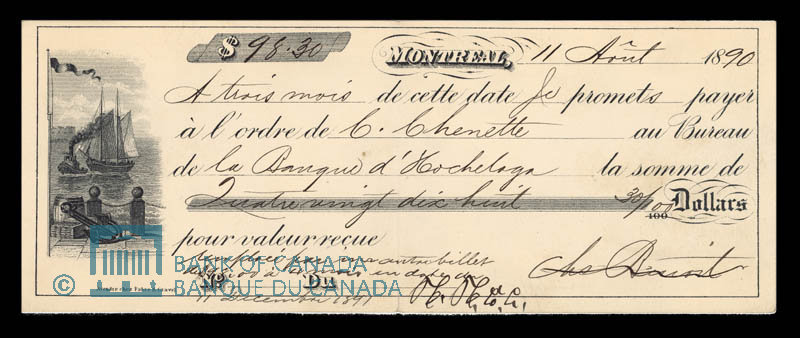 $ 98.30 MONTREAL, 11 Août 1890
A trois mois de cette date Je promets payer
à l'ordre de C. Chenette au Bureau
de la Banque d'Hochelaga la somme de
Quatre vingt dix huit 30/100 Dollars
pour valeur reçue
par un autre billet
à mois en date du
No. Du
11 Décembre 1891
Chs Benoit
© BANK OF CANADA
BANQUE DU CANADA